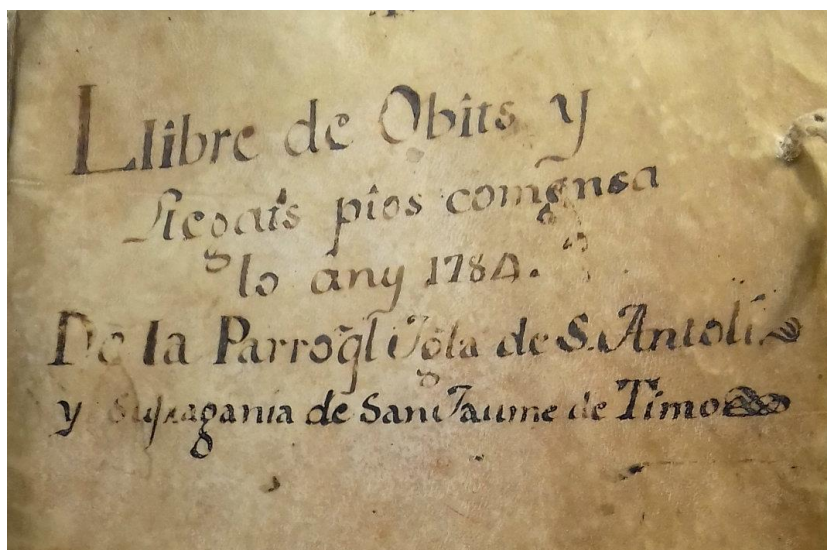 Llibre de Obits y
Llegats pios comensa
lo any 1784.
De la Parroql Igla de S. Antolí
y Sufragania de Sant Jaume de Timor